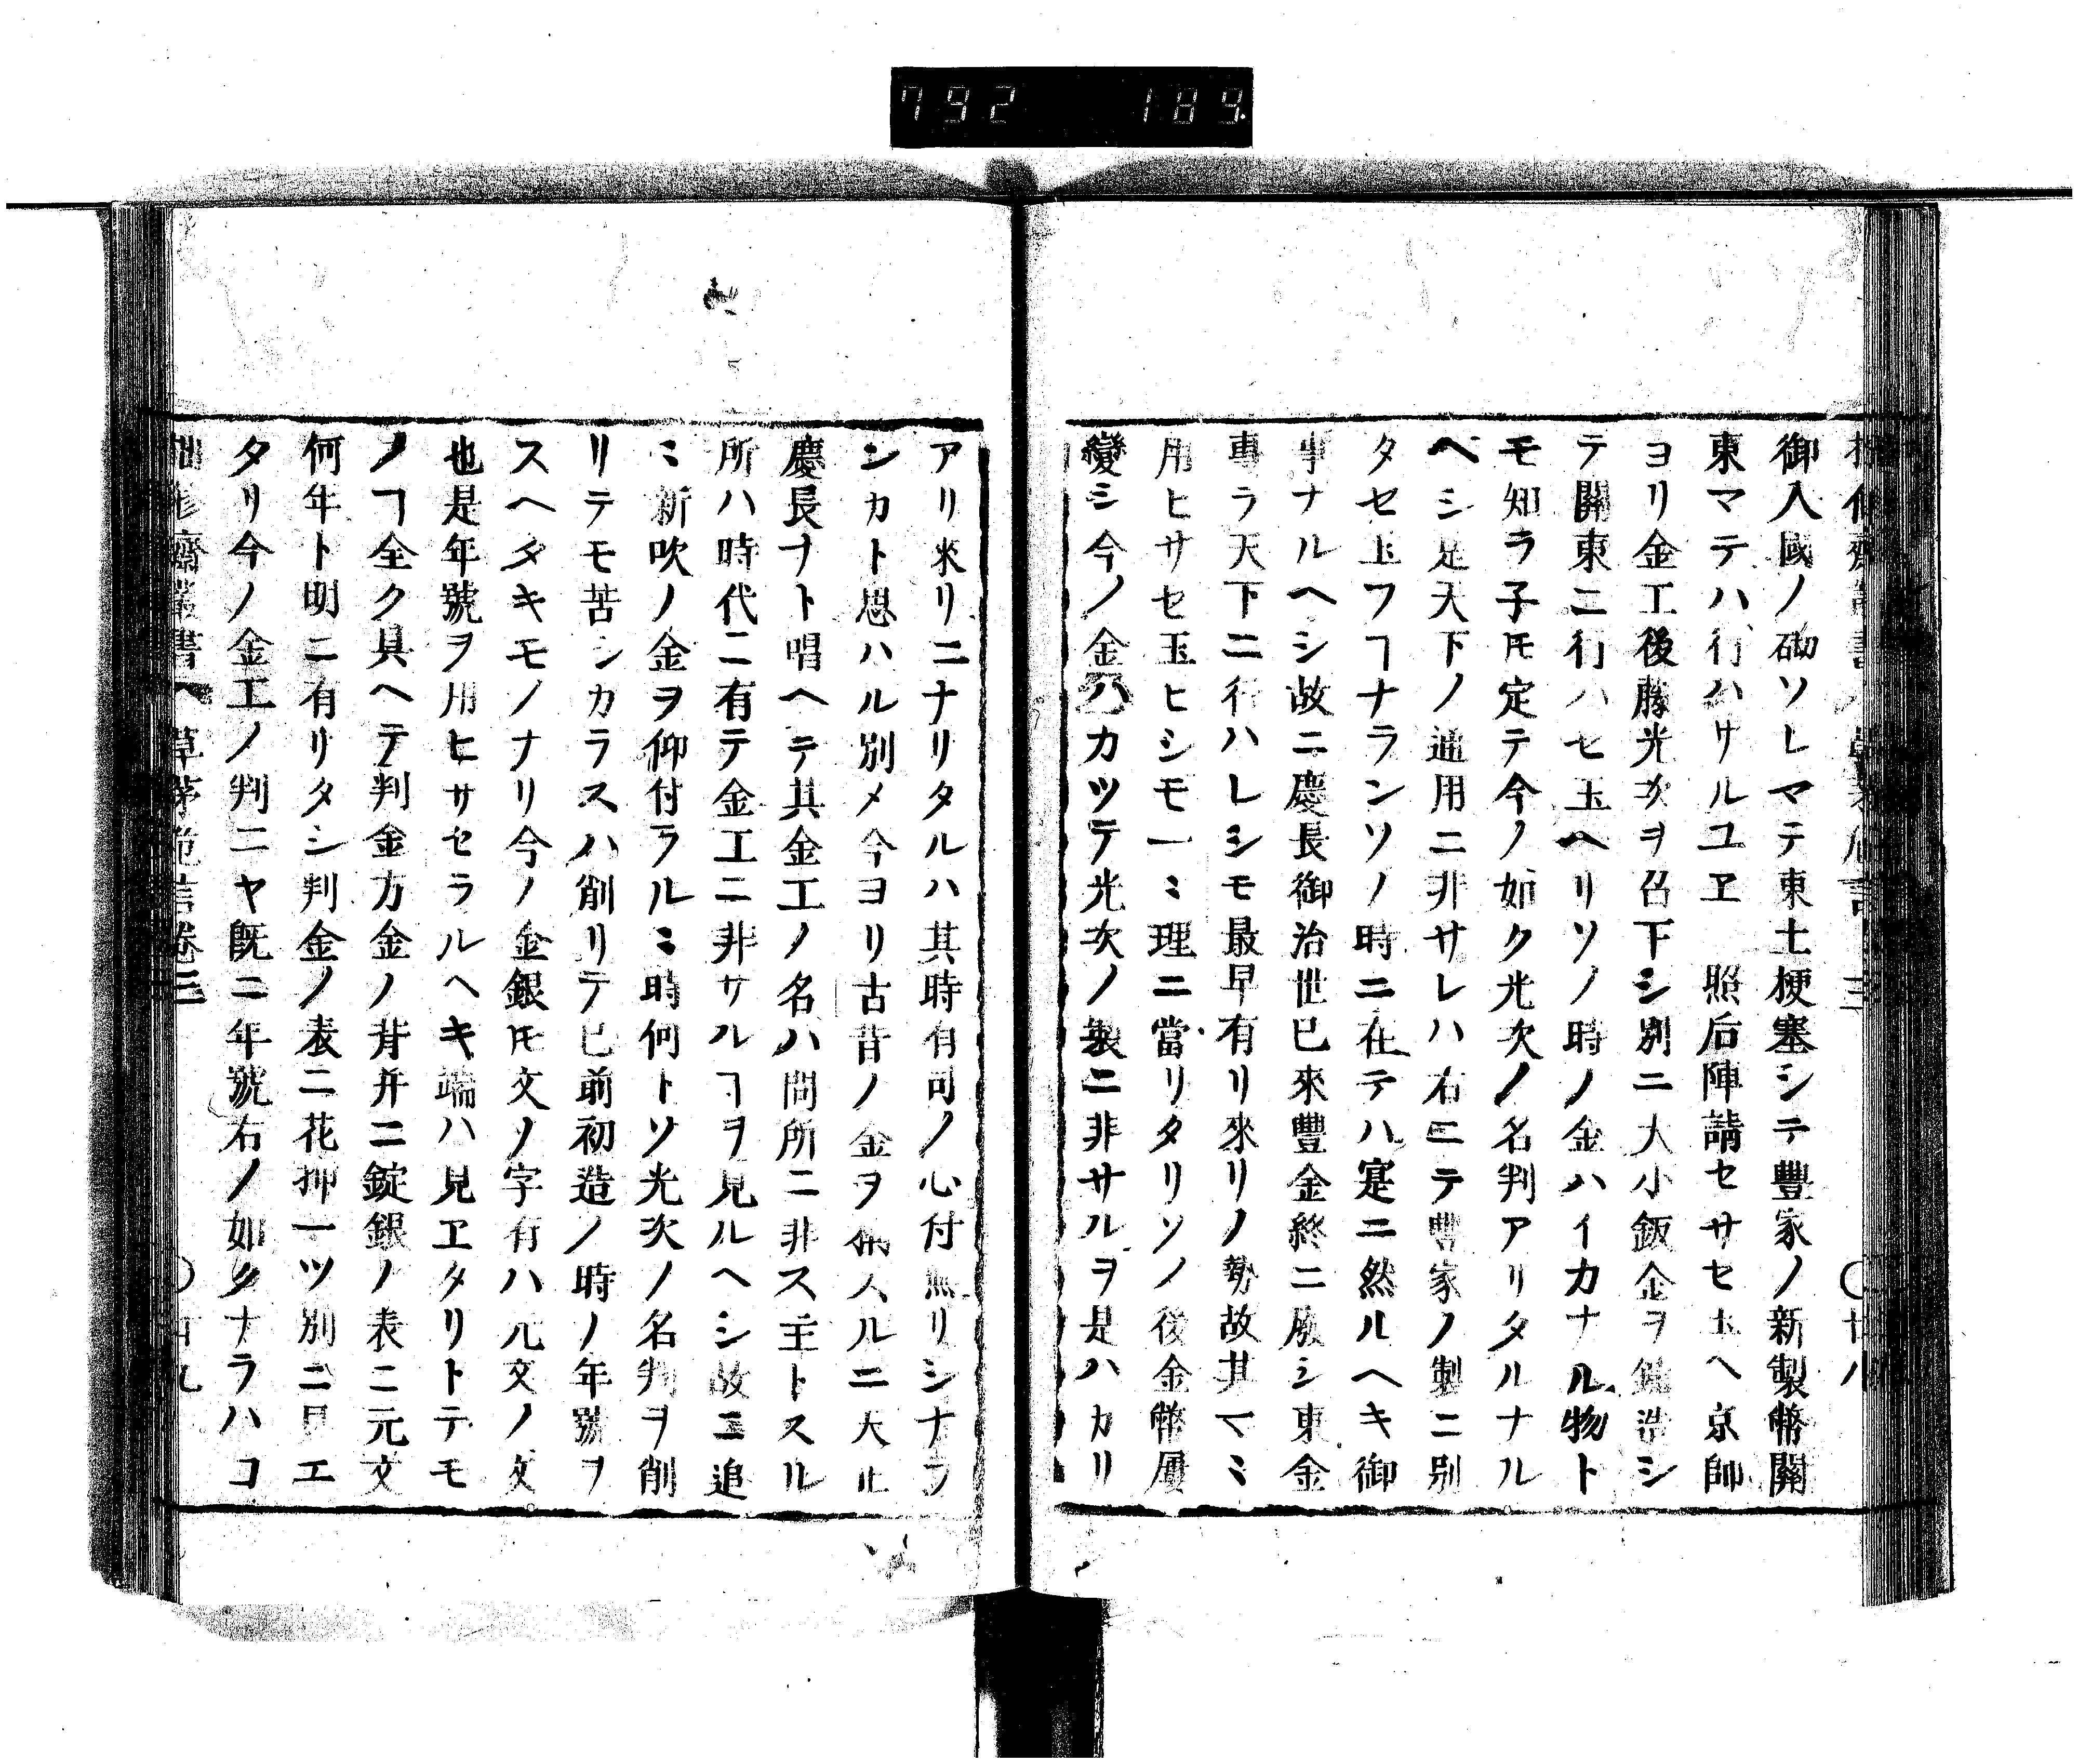 792 189
御入國ノ砌ソレマテ東土梗塞シテ豐家ノ新製幣關
東マテハ行ハサルユヱ　照后陣請セサセ玉ヘ京師
ヨリ金工後藤光次ヲ召下シ別ニ大小鈑金ヲ鑄造シ
テ關東ニ行ハセ玉ヘリソノ時ノ金ハイカナル物ト
モ知ラ子𪜈定テ今ノ如ク光次ノ名判アリタルナル
ヘシ是天下ノ通用ニ非サレハ右ニテ豐家ノ製ニ別
タセ玉フヿナランソノ時ニ在テハ寔ニ然ルヘキ御
事ナルヘシ故ニ慶長御治世已來豐金終ニ廢シ東金
專ラ天下ニ行ハレシモ最早有リ來リノ勢故其マミ
用ヒサセ玉ヒシモ一ミ理ニ當リタリソノ後金幣屢
變シ今ノ金ハカツテ光次ノ製ニ非サルヲ是ハカリ
アリ來リニナリタルハ其時有司ノ心付無リシナラ
ンカト思ハル別メ今ヨリ古昔ノ金ヲ ルニ大止
慶長ナト唱ヘテ其金工ノ名ハ問所ニ非ス主トスル
所ハ時代ニ有テ金工ニ非サルヿヲ見ルヘシ故ニ追
ミ新吹ノ金ヲ仰付ラルミ時何トソ光次ノ名判ヲ削
リテモ苦シカラスハ削リテ已前初造ノ時ノ年號ヲ
スヘタキモノナリ今ノ金銀𪜈文ノ字有ハ元文ノ文
也是年號ヲ用ヒサセラルヘキ端ハ見ヱタリトテモ
ノヿ全ク具ヘテ判金方金ノ背并ニ錠銀ノ表ニ元文
何年ト明ニ有リタシ判金ノ表ニ花押一ツ別ニ見エ
タリ今ノ金工ノ判ニヤ既ニ年號右ノ如クナラハコ
齋叢書 草茅危言卷三 ○ 廿九